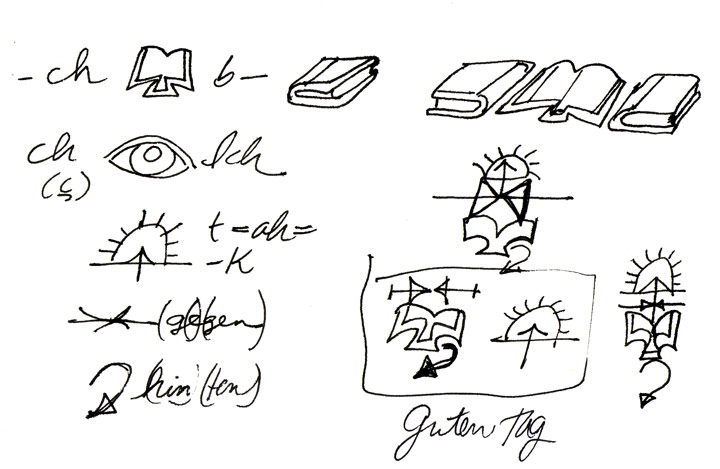 - ch b -
ch Ich
(ç)
t = ah =
- K
hin (ten)
Guten Tag